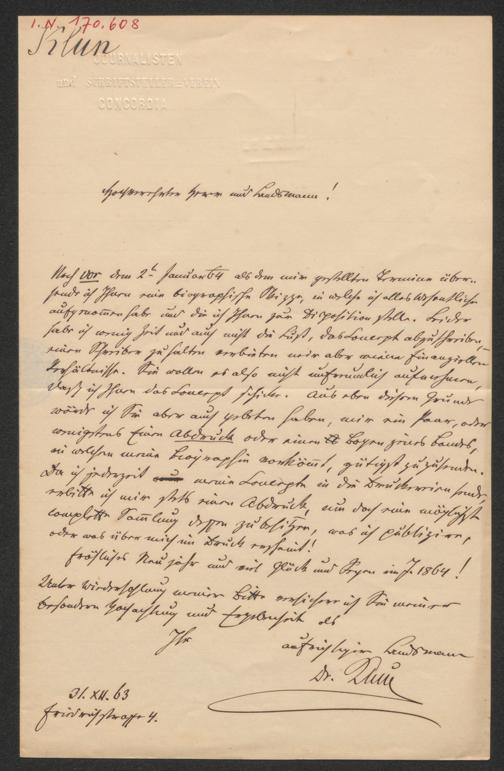 I.N. 170.608
Klun
JOURNALISTEN
und SCHRIFTSTELLER=VEREIN
CONCORDIA
Hochverehrter Herr und Landsmann!
Noch vor dem 2t Januar 64 als dem mir gestellten Termine über-
sende ich Ihnen eine biographische Skizze, in welche ich alles Wesentliche
aufgenommen habe und die ich Ihnen zur Disposition stelle. Leider
habe ich wenig Zeit und auch nicht die Lust, das Concept abzuschreiben,
einen Schreiber zu halten verbieten mir aber meine finanziellen
Verhältnisse. Sie wollen es also nicht unfreundlich aufnehmen,
daß ich Ihnen das Concept schicke. Aus eben diesem Grunde
würde ich Sie aber auch gebeten haben, mir ein Paar, oder
wenigstens Einen Abdruck oder einen Bogen jenes Bandes,
in welchem meine Biographie vorkömmt, gütigst zuzusenden.
Da ich jederzeit meine Concepte in die Druckereien sende,
erbitte ich mir stets einen Abdruck, um doch eine möglichst
complette Sammlung dessen zu besitzen, was ich publiziere,
oder was über mich im Druck erscheint!
Fröhliches Neujahr und viel Glück und Segen im J. 1864!
Unter Wiederholung meiner Bitte versichere ich Sie meiner
besondern Hochachtung und Ergebenheit als
Ihr
aufrichtiger Landsmann
Dr. Klun
31. XII. 63
Friedrichstrasse 4.